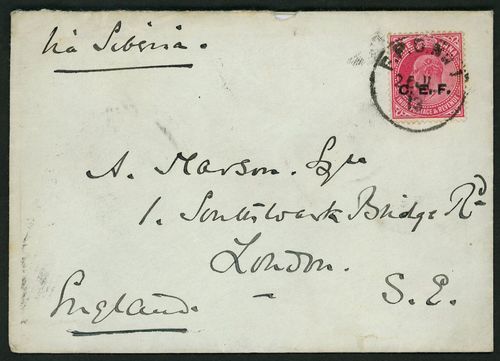 Via Siberia.
F.P.O. No 1
C. E. F.
INDIA POSTAGE & REVENUE
A. Marson. Esqre
1. Southwark Bridge Rd
London.
S.E.
England.